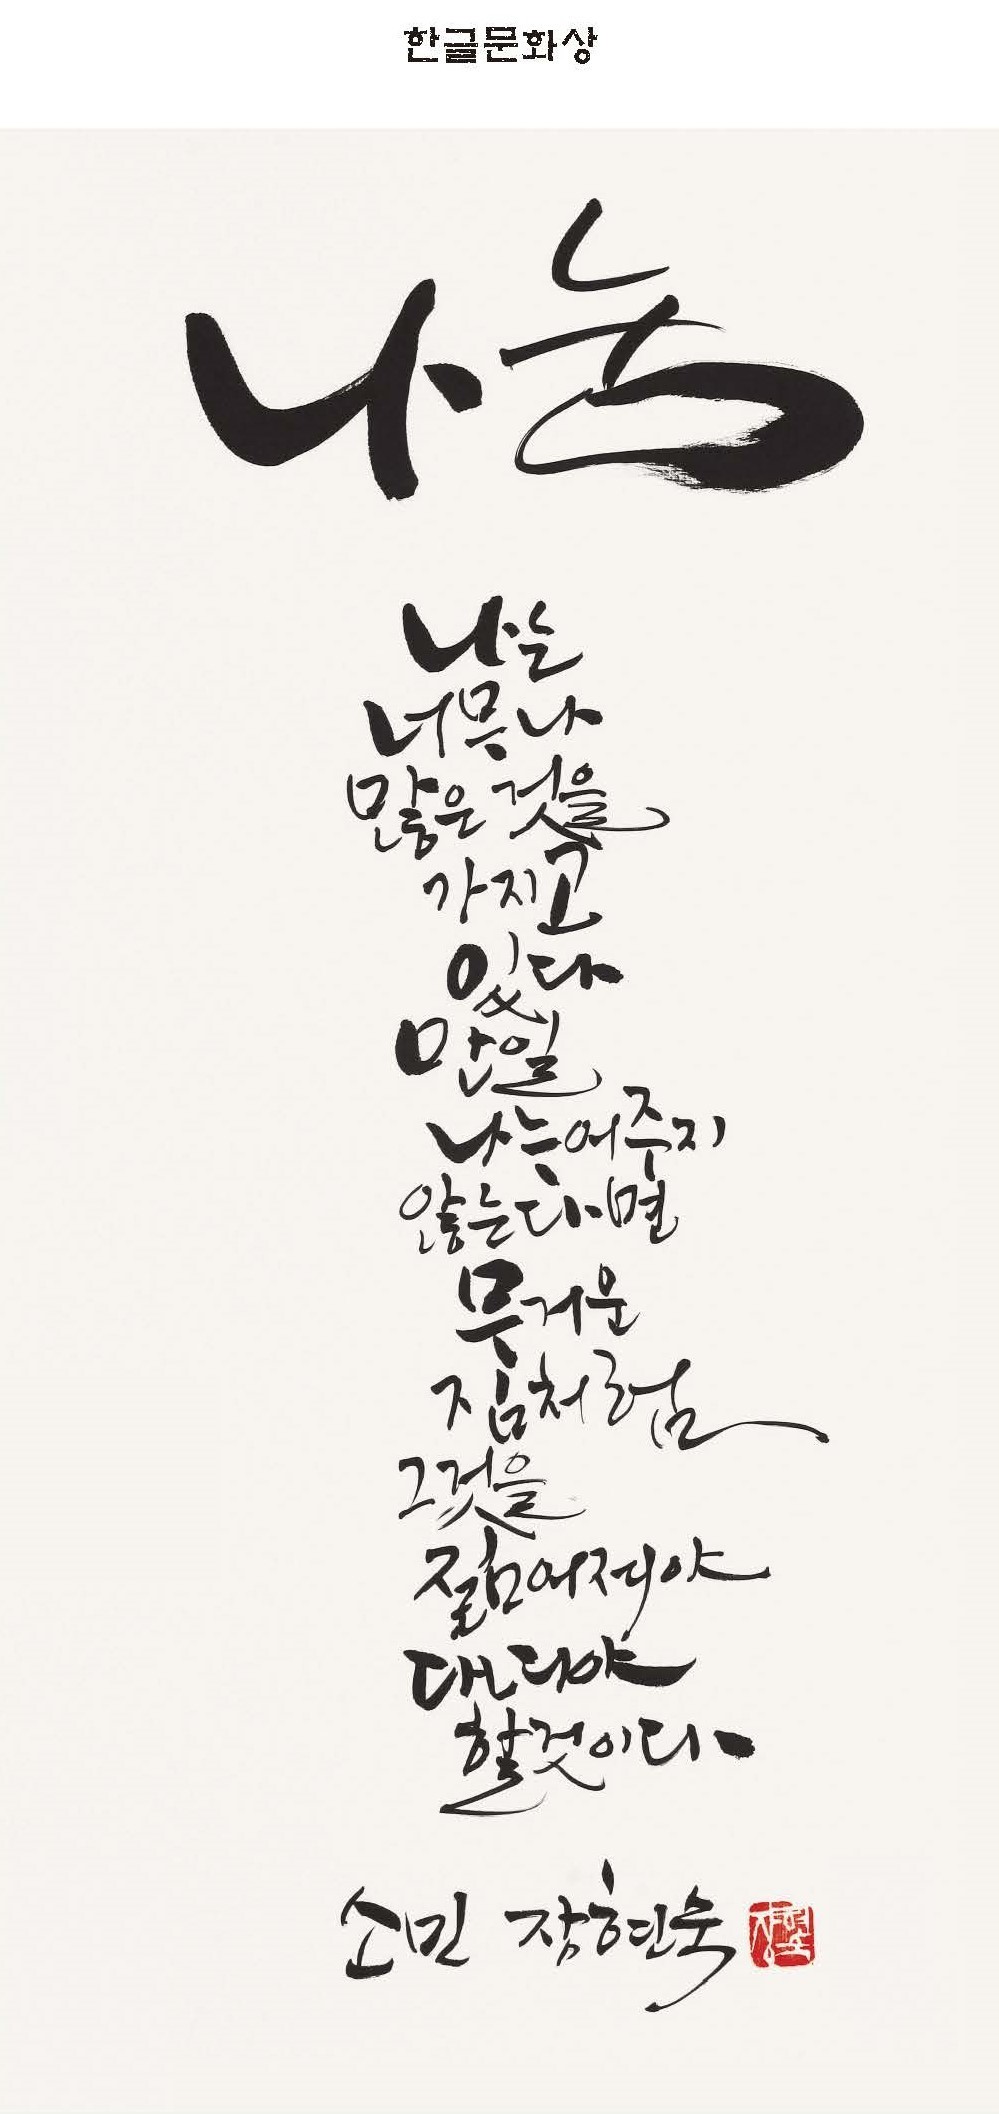 한글문화상
나눔
나는
너무나
많은 것을
가지고
있다
만일
나누어주지
않는다면
무거운
짐처럼
그것을
짊어져야
대녀야
할것이다
소민 장현숙
장현숙